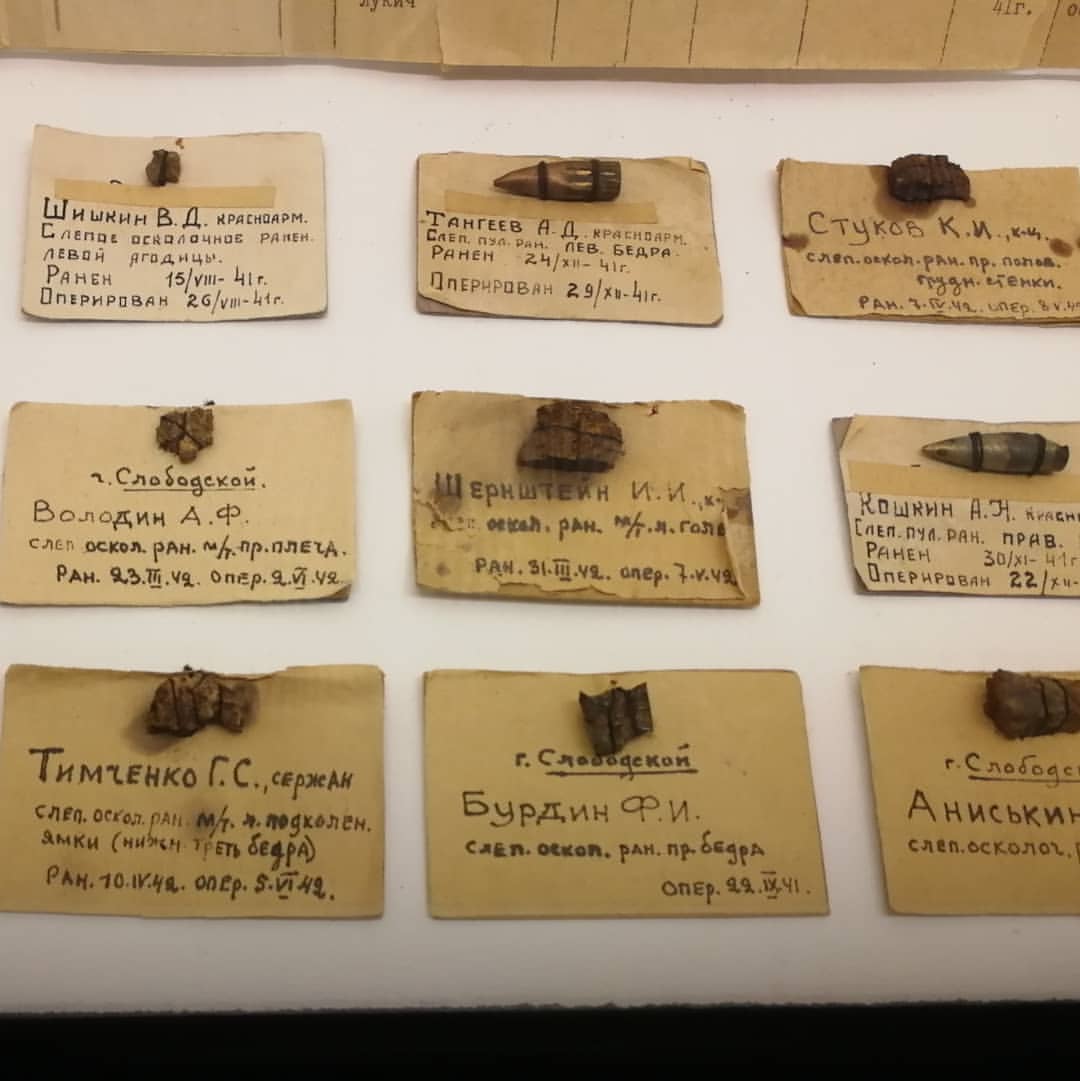 лукич
41г.
Шишкин В.Д. красноарм.
Слепое осколочное ранен.
левой ягодицы.
Ранен 15/VIII-41г.
Оперирован 26/VIII-41г.
Тангеев А.Д. красноарм.
Слеп. пул. ран. лев. бедра.
Ранен 24/XII-41г.
Оперирован 29/XII-41г.
Стуков К.И., к-ц.
слеп. оскол. ран. пр. полов.
грудн. стенки.
Ран. 7.IV.42. опер. 8.V.4
г. Слободской.
Володин А.Ф.
слеп оскол. ран. м/т. пр. плеча.
Ран. 23.III.42. опер. 2.VI.42.
Шернштейн И.И., к-
оскол. ран. м/т. л. голе
Ран. 31.III.42. опер. 7.V.42
Кошкин А.Н. красн
Слеп. пул. ран. прав.
Ранен 30/XI-41г
Оперирован 22/XII-
Тимченко Г.С., сержан
слеп. оскол. ран. м/т. л. подколен.
ямки (нижн. треть бедра)
Ран. 10.IV.42. опер. 5.VI.42.
г. Слободской
Бурдин Ф.И.
слеп. оскол. ран. пр. бедра
опер. 22.IX.41.
г. Слободс
Аниськин
слеп. осколоч.